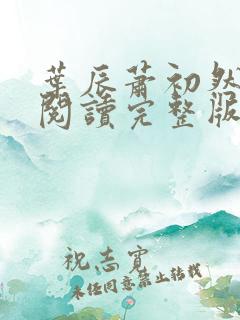 葉辰蕭初然
閱讀完整版
祝志寬
未經同意禁止轉載